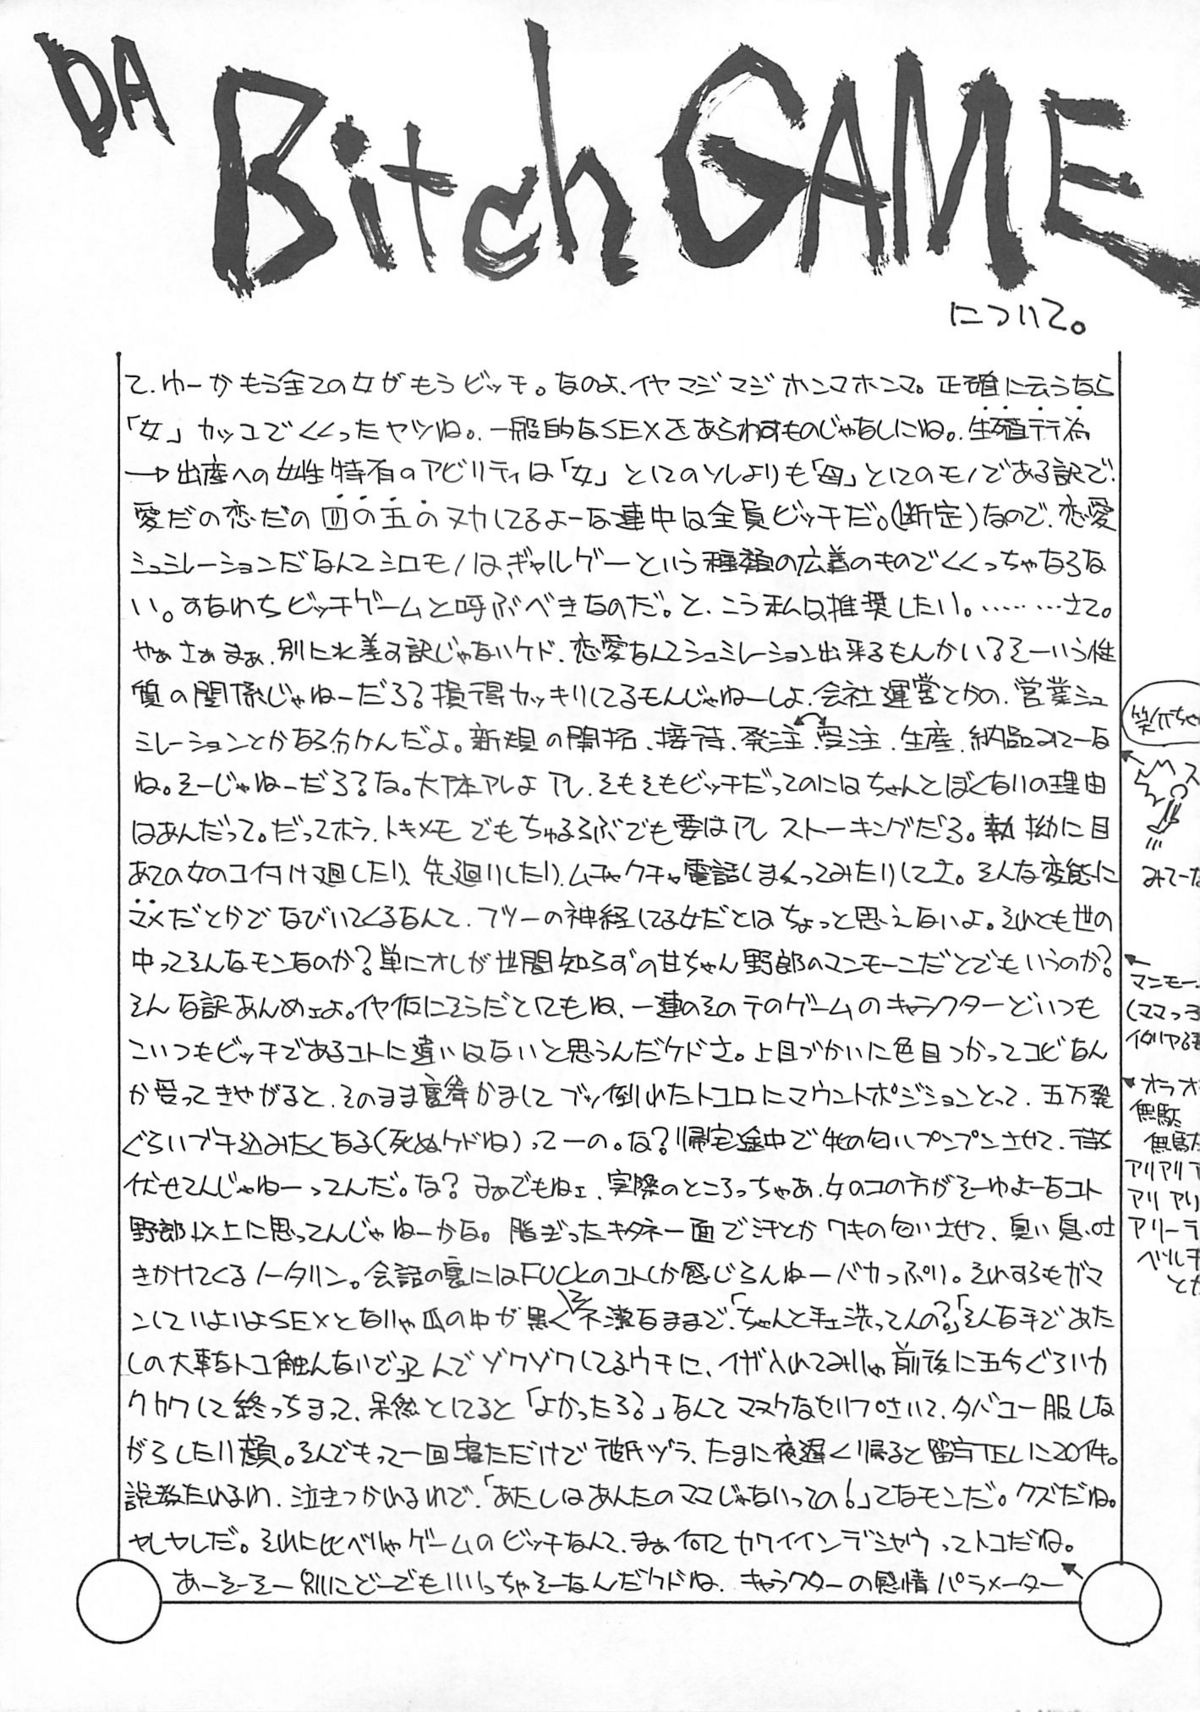 DA Bitch GAME
について。
て、ゆーかもう全ての女がもうビッチ。なのよ、イヤマジマジホンマホンマ。正確に云うなら
「女」カッコでくくったヤツね。一般的なSEXをあらわすものじゃなしにね。生殖行為
→出産への女性特有のアビリティは「女」としてのソレよりも「母」としてのモノである訳で、
愛だの恋だの四の五のヌカしてるよーな連中は全員ビッチだ。(断定)なので、恋愛
シュミレーションだなんてシロモノは、ギャルゲーという種類の広義のものでくくっちゃなるな
い。すなわちビッチゲームと呼ぶべきなのだ。と、こう私は推奨したい。………さて。
やぁさぁまぁ、別に水差す訳じゃないケド、恋愛なんてシュミレーション出来るもんかい?そーいう性
質の関係じゃねーだろ?損得カッキリしてるモンじゃねーしよ、会社運営とかの、営業シュ
ミレーションとかなら分ケんだよ。新規の開拓、接待、発注、受注、生産、納品みてーな
ね。そーじゃねーだろ?な。大体アレよアレ、そもそもビッチだってのにはちゃんとぼくないの理由
はあんだって。だってホラ、トキメモでもちゅるるぶでも要はアレストーキングだろ。執拗に目
あての女のコ付け廻したり、先廻りしたり、ムチャクチャ電話しまくってみたりしてさ。そんな変態に
マメだとかでなびいてくるなんて、フツーの神経してる女だとはちょっと思えないよ。それとも世の
中ってそんなモンなのか?単にオレが世間知らずの甘ちゃん野郎のマンモーニだとでもいうのか?
そんな訳あんめェよ。イヤ仮にそうだとしてもね、一連のそのテのゲームのキャラクターどいつも
こいつもビッチであるコトに違いはないと思うんだケドさ。上目づかいに色目つかってコビなん
か売ってきやがると、そのまま裏拳かましてブッ倒れたトコロにマウントポジションとって、五万発
ぐらいブチ込みたくなる(死ぬケドね)ってーの。な?帰宅途中で化の匂いプンプンさせて、待ち
伏せてんじゃねーってんだ。な?まぁでもねェ、実際のところっちゃあ、女のコの方がそーゆよーなコト
野郎以上に思ってんじゃねーかな。脂ぎったキタネー面で汗とかワキの匂いさせて、臭い息吐
きかけてくるノータリン。会話の裏にはFUCKのコトしか感じらんねーバカっぷり。それすらもガマ
ンしていよいよSEXとなりゃ爪の中が黒く不潔なままで、「ちゃんと手ェ洗ってんの?」「そんな手であた
しの大事なトコ触んないで」ンでゾクゾクしてるウチに、イザ入れてみりゃ前後に五分ぐらいカ
クカクして終っちまって、呆然としてると「よかったろ?」なんてマヌケなセリフさいて、タバコ一服しな
がらしたり顔。そんでもって一回寝ただけで彼氏ヅラ、たまに夜遅く帰ると留守TELに20件。
説教たれるわ、泣きつかれるわで、「あたしはあんたのママじゃないっての!」てなモンだ。クズだね。
ヤレヤレだ。それに比べりゃゲームのビッチなんて、まぁ何てカワイインデショウってトコだね。
あーそーそー別にどーでもいいっちゃそーなんだケドね、キャラクターの感情パラメーター
みてーな
マンモー
(ママっ子
イタリア
オラオ
無駄
無駄
アリアリア
アリアリ
アリーデ
ベルチ
とか